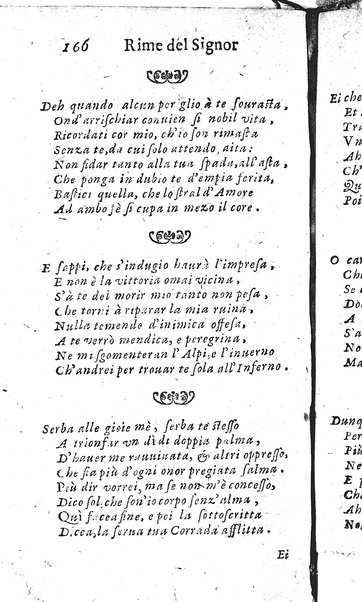 166 Rime del Signor
Deh quando alcun periglio à te sourasta,
Ond'arrischiar conuien sì nobil vita,
Ricordati cor mio, ch'io son rimasta
Senza te, da cui solo attendo, aita:
Non fidar tanto alla tua spada, all'asta,
Che ponga in dubio te d'empia ferita,
Bastici quella, che lo stral d'Amore
Ad ambo fè sì cupa in mezo il core.
E sappi, che s'indugio haurà l'impresa,
E non è la vittoria omai vicina,
S'à te del morir mio tanto non pesa,
Che torni à riparar la mia ruina,
Nulla temendo d'inimica offesa,
A te verrò mendica, e peregrina,
Ne mi sgomenteran l'Alpi, e l'inuerno
Ch'andrei per trouar te sola all'Inferno.
Serba alle gioie mè, serba te stesso
A trionfar vn dì di doppia palma,
D'hauer me rauuiuata, & altri oppresso,
Che fia più d'ogni onor pregiata salma.
Più dir vorrei, ma se non m'è concesso,
Dico sol, che son'io corpo senz'alma,
Quì facea fine, e poi la sottoscritta
Dicea, la serua tua Corrada afflitta.
Ei
Ei che
Et
Tra
Vn
Ah
Ch'
Qu
Poi
O car
Che
Se
Do
A
S'a
No
Al
Dunq
Per
Più
Ne
E
Che
Ah
No